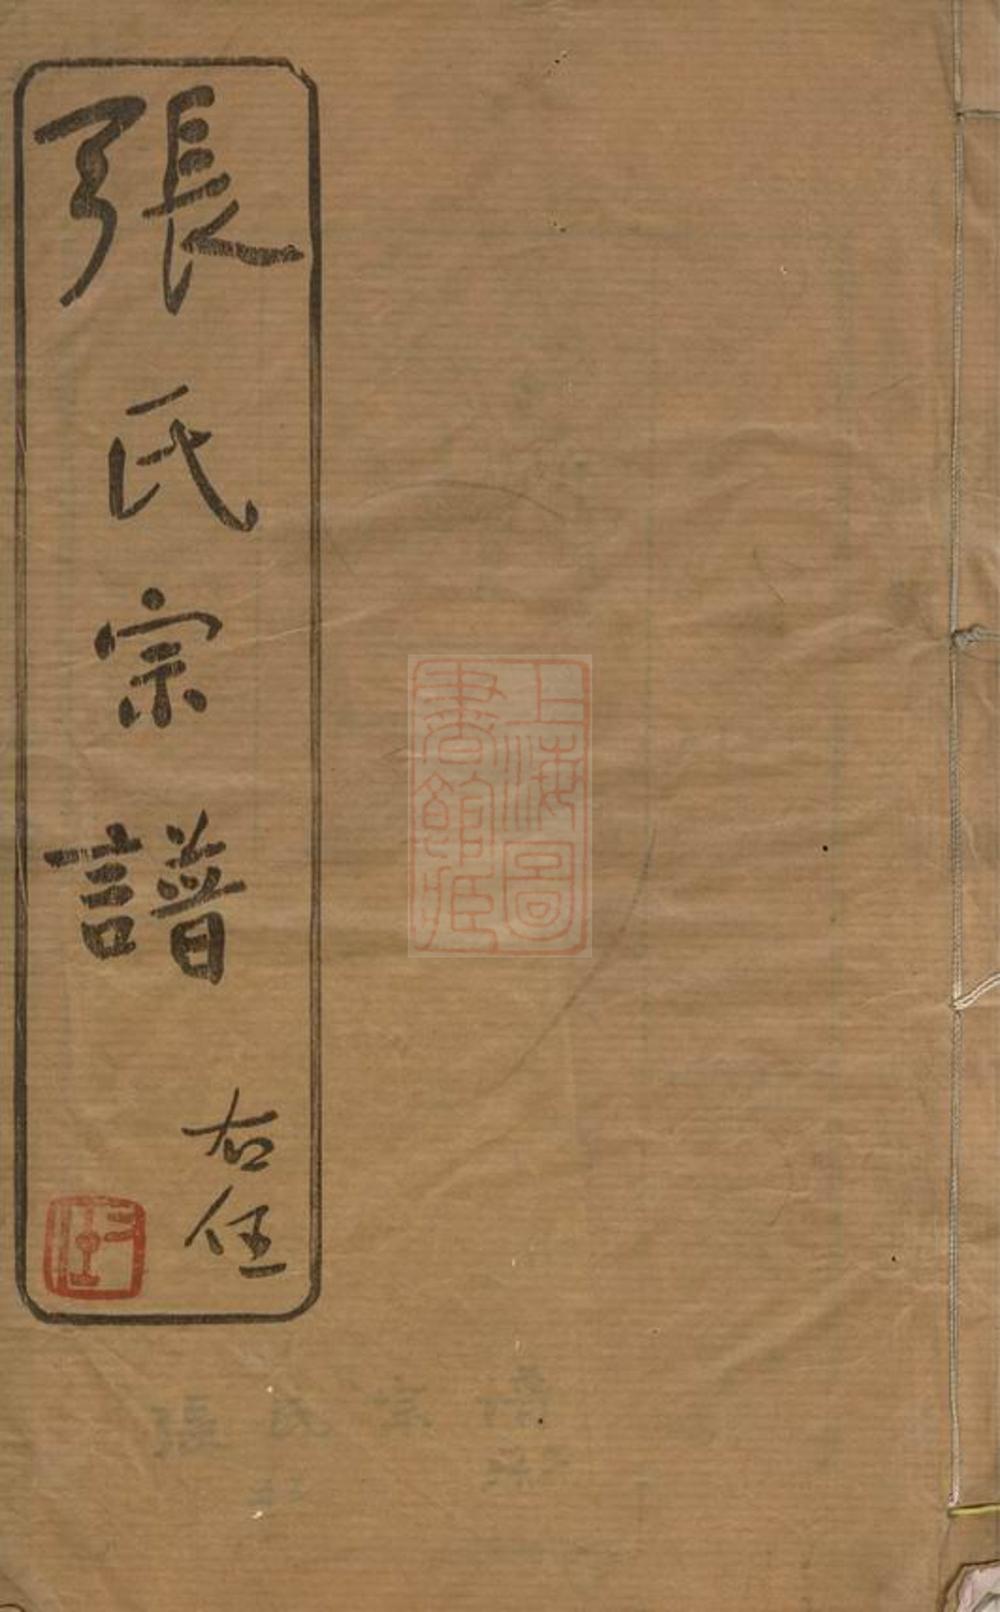 張氏宗譜
右任
上海圖
書館藏